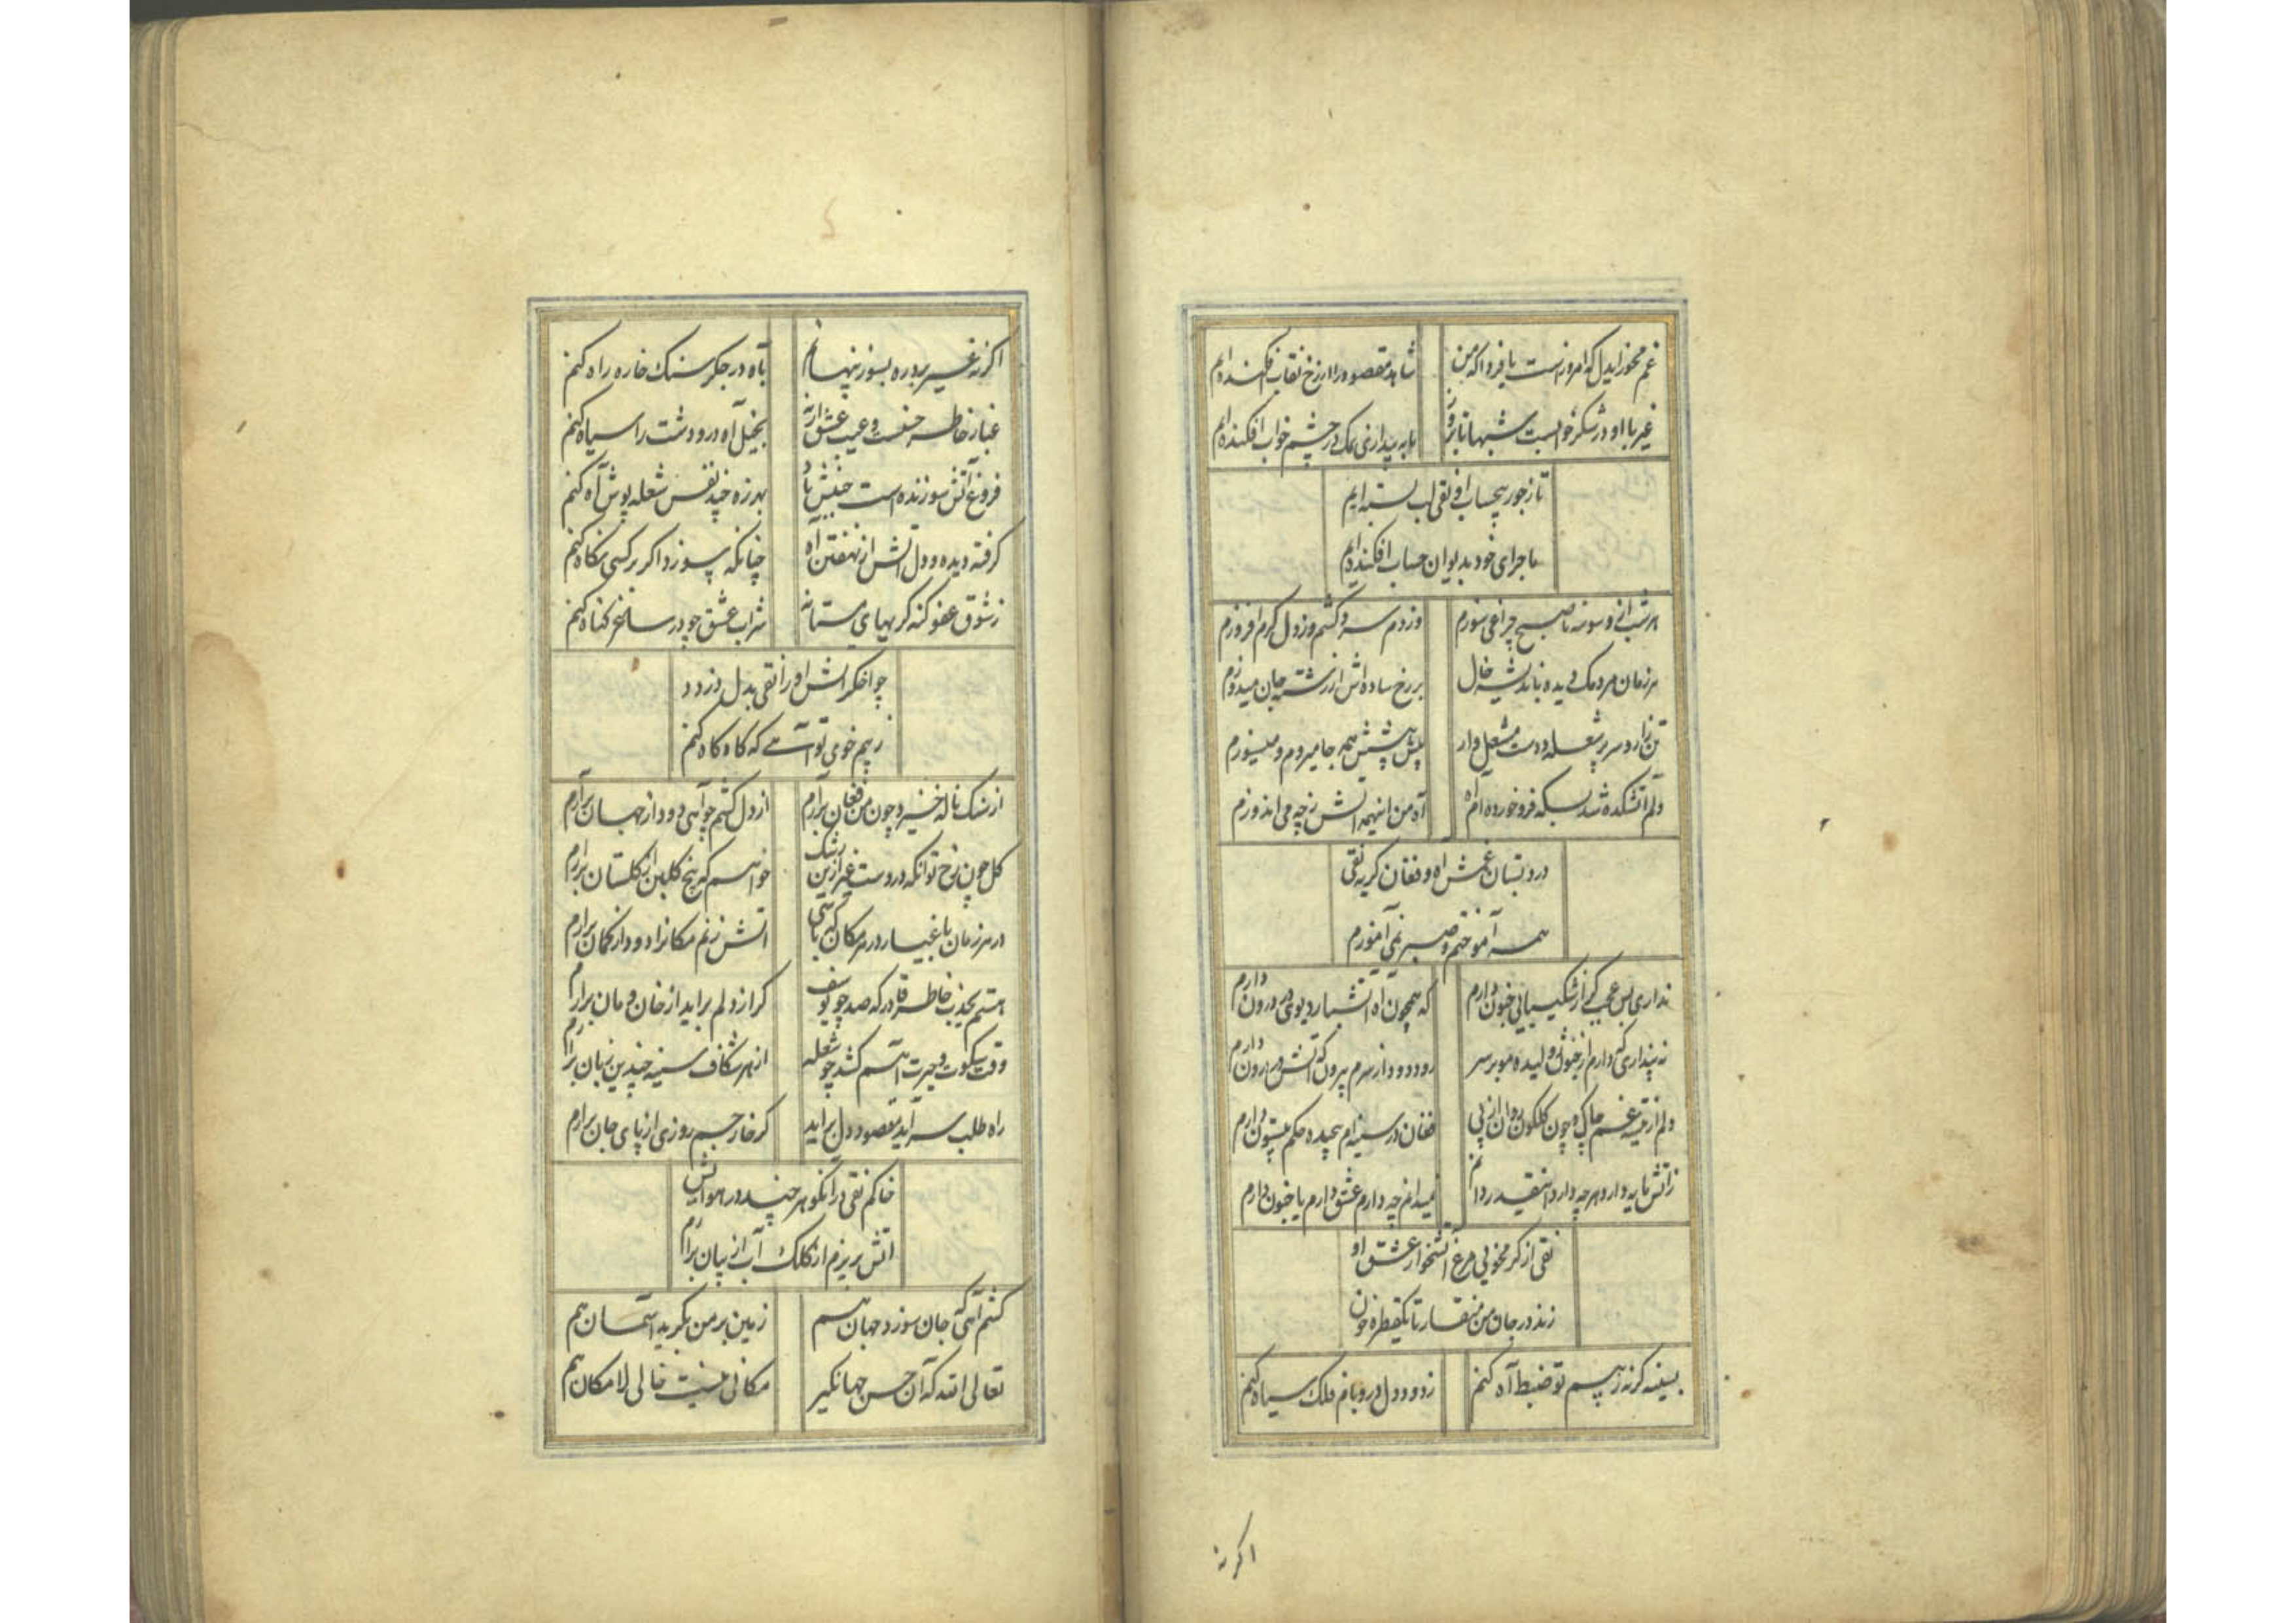 غم مخور ایدل که امروز است یا فردا که من
شاهد مقصود را از رخ نقاب افکنده ایم
غیر با او در شکر خوابست شبها تا بروز
ما به بیداری نمک در چشم خواب افکنده ایم
تا ز جور بیحساب او نقی لب بسته ایم
ماجرای خود بدیوان حساب افکنده ایم
هر شب از وسوسه تا صبح چراغی سوزم
وز دم سرد کشم وز دل گرم افروزم
هر زمان مردمک دیده باندیشه خال
بر رخ ساده اش از رشته جان میدوزم
تن نزار و سر پر شعله و دست مشعل وار
پیش پیشش همه جا میروم و میسوزم
دلم آتشکده شد بسکه فرو خورده ام آه
آه من اینهمه آتش ز چه می اندوزم
در دبستان غمش آه و فغان گریه نقی
همه آموختم و صبر نمی آموزم
نداری بس عجب گر از شکیبایی جنون دارم
که همچون آه آتشبار دیوی در درون دارم
نه پنداری که دارم از جنون ژولیده مو بر سر
رود دود از سرم بیرون که آتش در درون دارم
دلم از تیشه غم چاک و چون گلگون روان از پی
فغان در سینه ام پیچیده حکم بیستون دارم
ز آتش مایه دارد هر چه دارد اینقدر دانم
نمیدانم چه دارم عشق دارم یا جنون دارم
نقی از گرمخویی مرغ آتشخوار عشق او
زند در جان من منقار تا یکقطره خون
بسینه گر نه ز بیم تو ضبط آه کنم
ز دود دل در و بام فلک سیاه کنم
اگر نه
اگر نه غیر برد ره بسوز پنهانم
بآه در جگر سنگ خاره راه کنم
غبار خاطر حسنست و عیب عشق ار نه
بخیل آه در و دشت را سیاه کنم
فروغ آتش سوزنده است جنبش باد
بهرزه چند نفس شعله پوش آه کنم
گرفته دیده و دل آتش از نهفتن آه
چنانکه سوزد اگر بر کسی نگاه کنم
ز شوق عفو کنه گریهای مستانه
شراب عشق چو در ساغر گناه کنم
چو اخگر آتش او را نقی بدل دزدد
ز بیم خوی تو آتشی که گاه گاه کنم
از سنگ ناله خیزد چون من فغان برآرم
از دل کشم چو آهی دود از جهان برآرم
گل چون رخ تو آنگه در دست غیر ازین رشک
خواهم که بیخ گلبن از گلستان برآرم
در هر زمان باغیار در هر مکان که باشی
آتش زنم مکانرا دود از کمان برآرم
هستم بجذب خاطر قادر که صد چو یوسف
گر از دلم براید از خان و مان برارم
وقت سکوت و حیرت آتشم کشد چو شعله
از هر شکاف سینه چندین زبان برارم
راه طلب سر آید مقصود دل براید
گر خار جسم روزی از پای جان برارم
خاکم نقی در آنکو هر چند در هوایش
آتش بریزم از کلک آب از بیان برارم
کشم آهی که جان سوزد جهان هم
زمین بر من بگرید آسمان هم
تعالی الله که آن حسن جهانگیر
مکانی نیست خالی لامکان هم